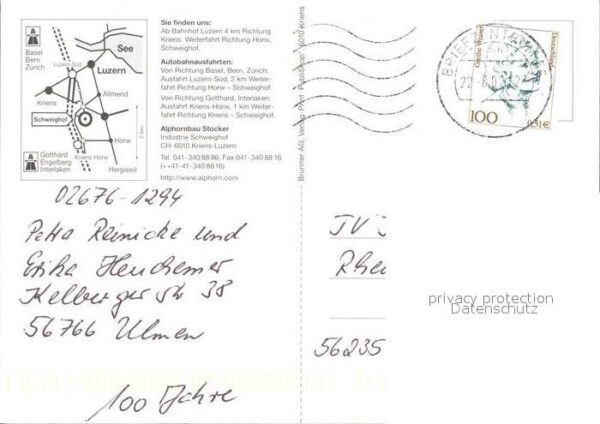 Basel
Bern
Zürich
See
Luzern-Süd
Luzern
Allmend
Kriens
Schweighof
Horw
Kriens-Horw
2 km
Gotthard
Engelberg
Interlaken
Hergiswil
Sie finden uns:
Ab Bahnhof Luzern 4 km Richtung
Kriens. Weiterfahrt Richtung Horw,
Schweighof.
Autobahnausfahrten:
Von Richtung Basel, Bern, Zürich:
Ausfahrt Luzern-Süd, 2 km Weiter-
fahrt Richtung Horw – Schweighof
Von Richtung Gotthard, Interlaken:
Ausfahrt Kriens-Horw, 1 km Weiter-
fahrt Richtung Kriens – Schweighof.
Alphornbau Stocker
Industrie Schweighof
CH-6010 Kriens-Luzern
Tel. 041-340 88 86, Fax 041-340 88 16
(++41-41-340 88 16)
http://www.alphorn.com
Brunner AG, Verlag
6010 Kriens
Deutschland
100
0,51 €
02676-1294
Petra Reinicke und
Erika
Kelberger Str 38
56766 Ulmen
100 Jahre
TV
Rhe
56235
privacy protection
Datenschutz